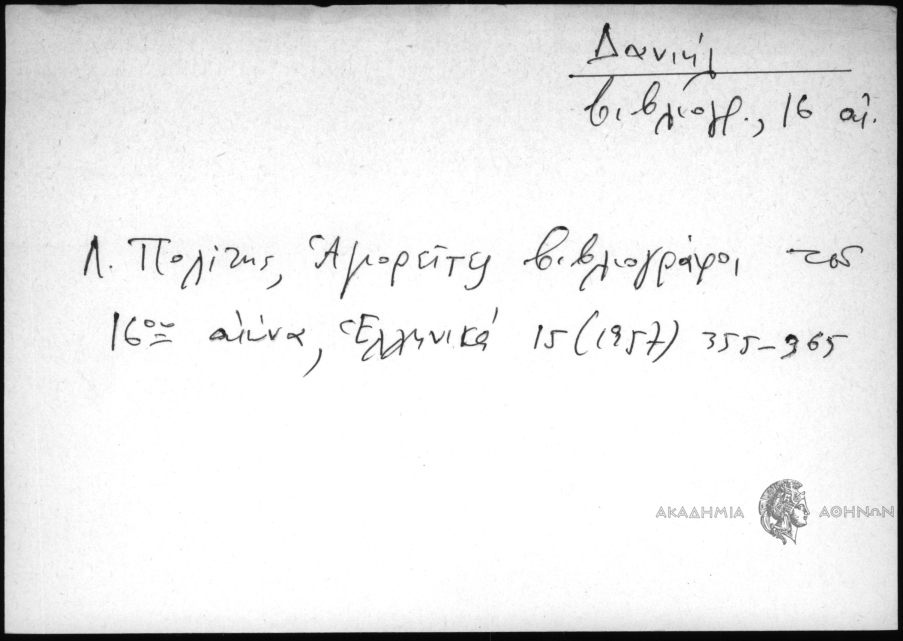 Δανιήλ
βιβλιογρ., 16 αἰ.
Λ. Πολίτης, Ἁγιορεῖτες βιβλιογράφοι τοῦ
16ου αἰώνα, Ἑλληνικά 15 (1957) 355-365
ΑΚΑΔΗΜΙΑ ΑΘΗΝΩΝ